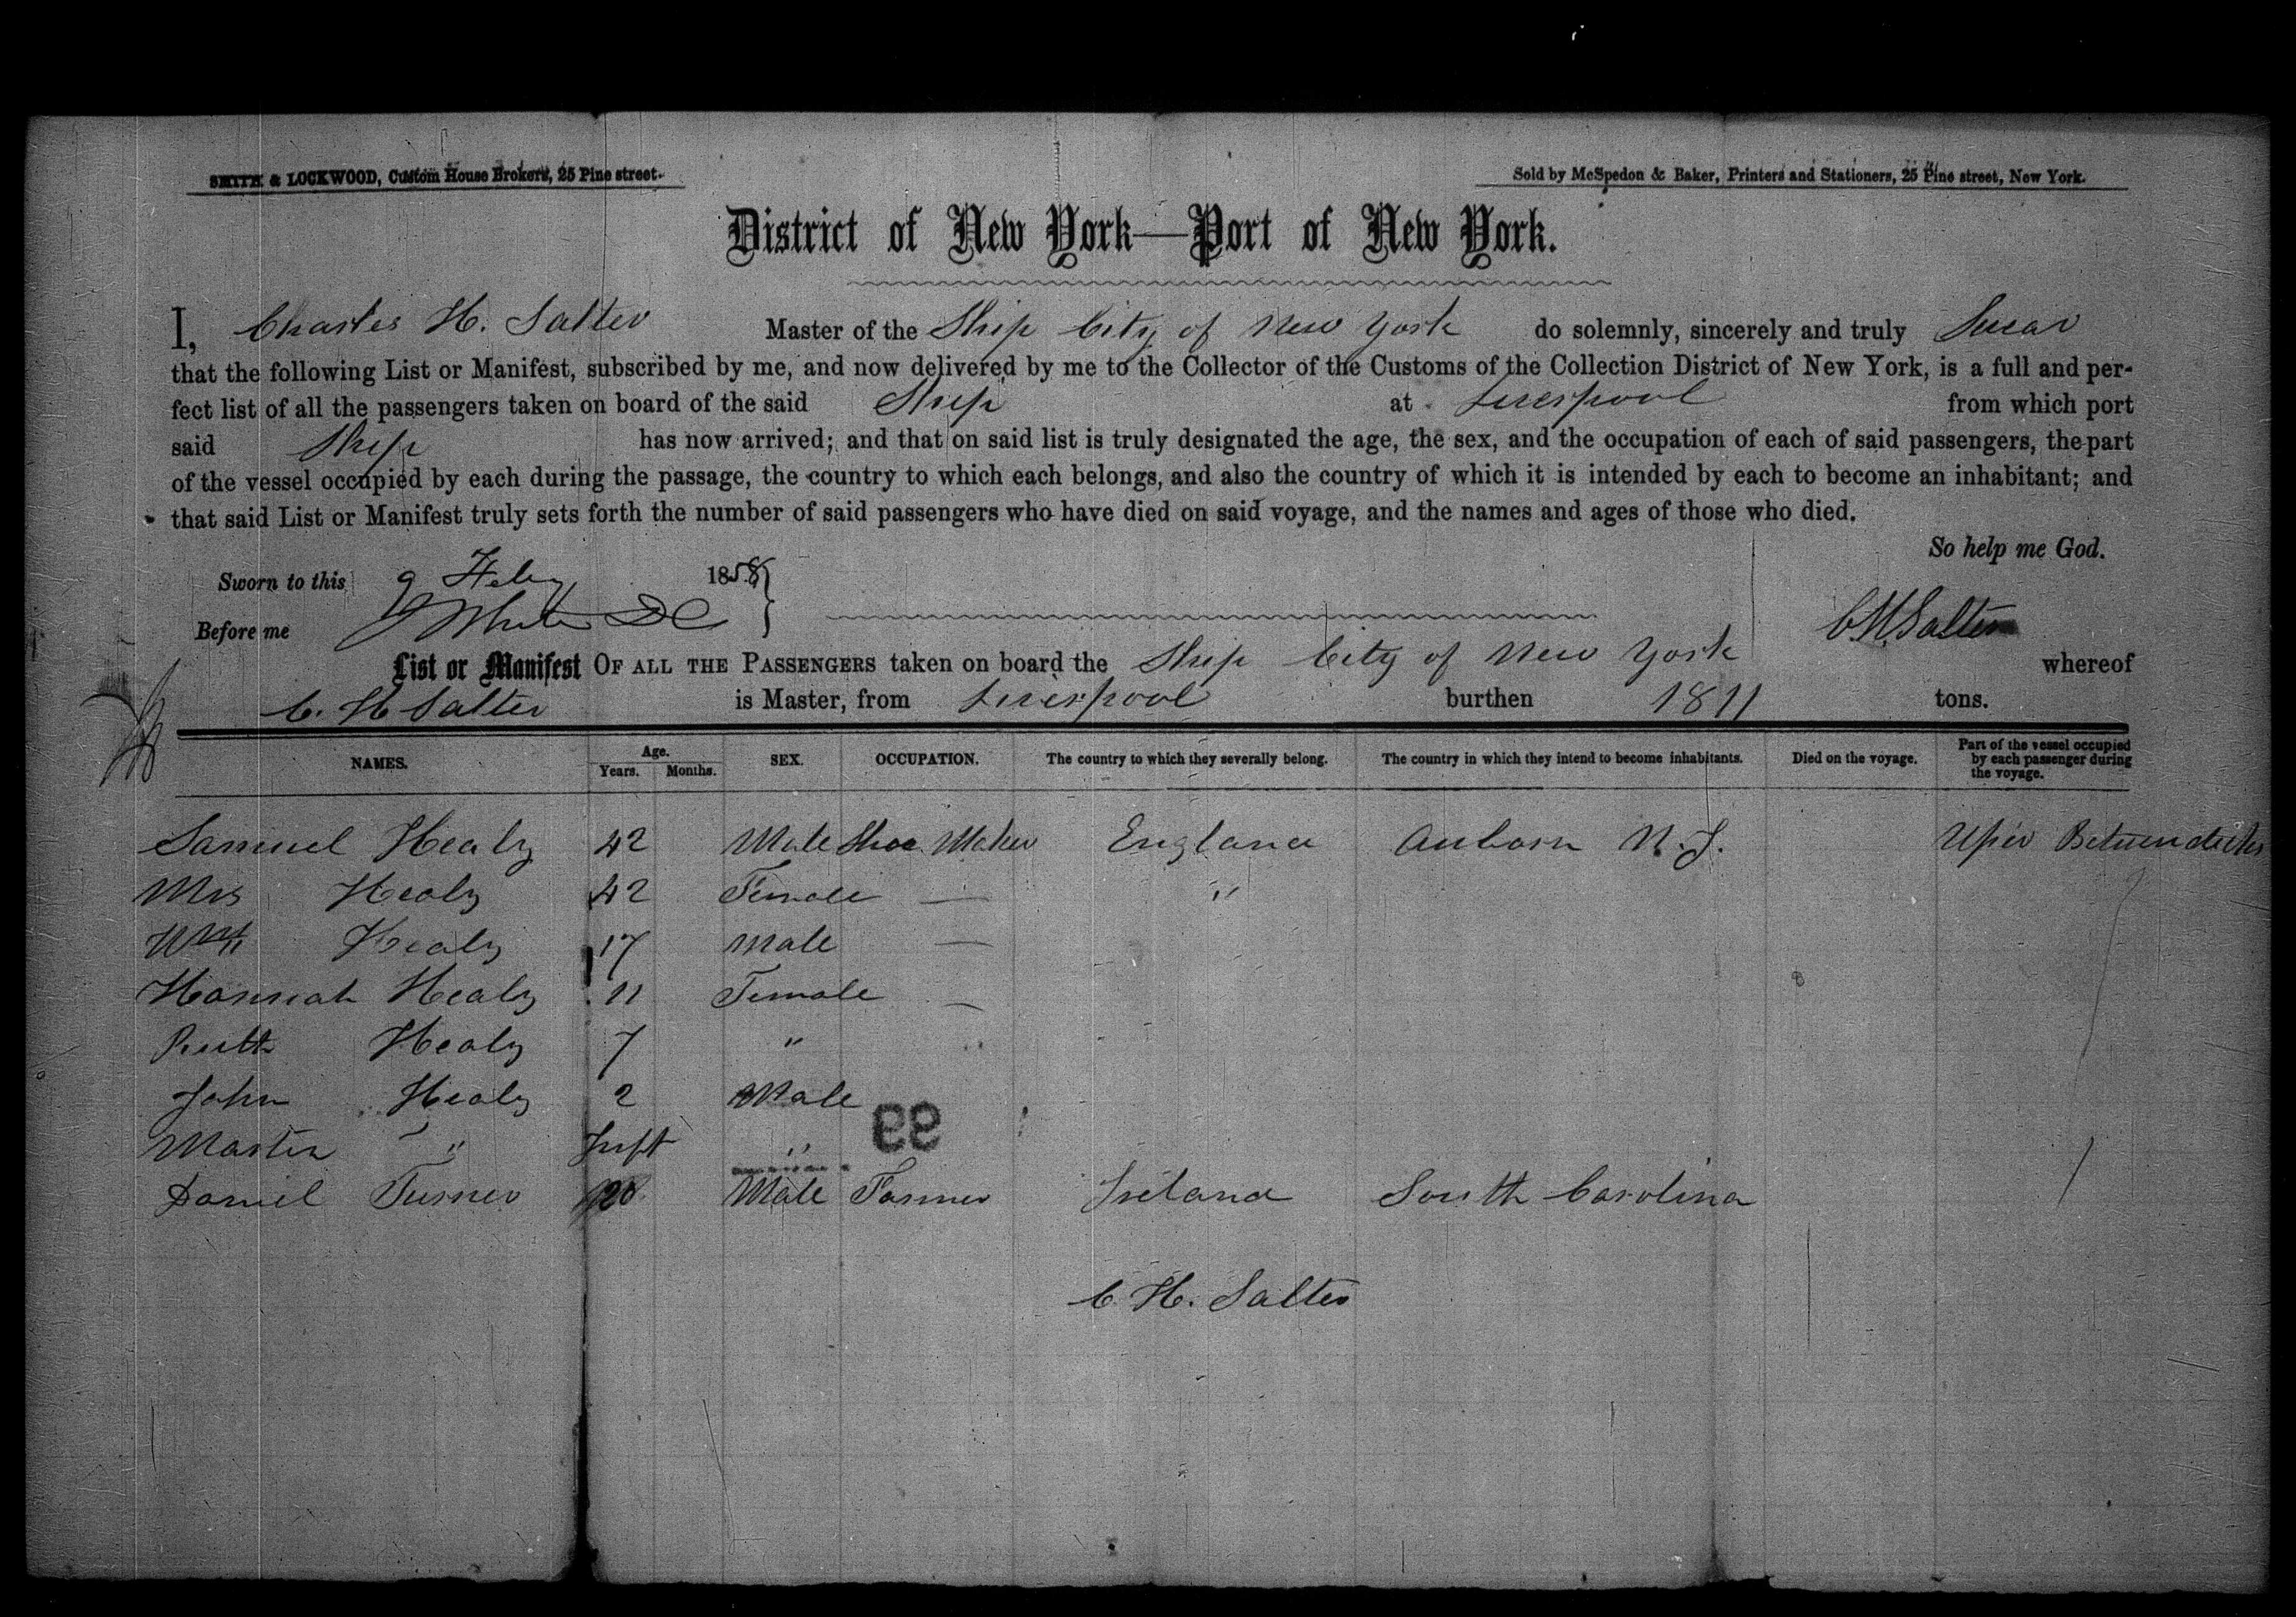 SMITH & LOCKWOOD, Custom House Brokers, 25 Pine street.
Sold by McSpedon & Baker, Printers and Stationers, 25 Pine street, New York.
District of New York—Port of New York.
I, Charles H. Salter Master of the Ship City of New York do solemnly, sincerely and truly Swear
that the following List or Manifest, subscribed by me, and now delivered by me to the Collector of the Customs of the Collection District of New York, is a full and per-
fect list of all the passengers taken on board of the said Ship at Liverpool from which port
said Ship has now arrived; and that on said list is truly designated the age, the sex, and the occupation of each of said passengers, the part
of the vessel occupied by each during the passage, the country to which each belongs, and also the country of which it is intended by each to become an inhabitant; and
that said List or Manifest truly sets forth the number of said passengers who have died on said voyage, and the names and ages of those who died.
So help me God.
Sworn to this 9 Feby 1858
Before me
C H Salter
List or Manifest OF ALL THE PASSENGERS taken on board the Ship City of New York whereof
C. H Salter is Master, from Liverpool burthen 1811 tons.
NAMES. Age. Years. Months. SEX. OCCUPATION. The country to which they severally belong. The country in which they intend to become inhabitants. Died on the voyage. Part of the vessel occupied by each passenger during the voyage.
Samuel Healy 42 Male Shoe Maker England Auborn N. J. Uper Betweendecks
Mrs Healy 42 Female — "
Wm Healy 17 Male —
Hannah Healy 11 Female —
Ruth Healy 7 "
John Healy 2 Male
Martin " Inft "
Daniel Turner 20 Male Farmer Ireland South Carolina
C. H. Salter